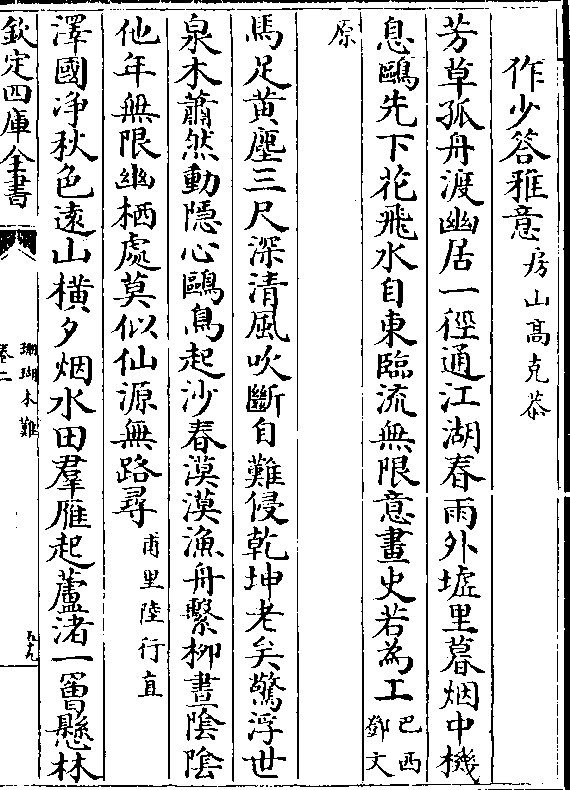 作少答雅意房山高克恭
芳草孤舟渡幽居一徑通江湖春雨外墟里暮烟中機
息鷗先下花飛水自東臨流無限意畫史若為工巴西鄧文
原
馬足黄塵三尺深清風吹斷自難侵乾坤老矣驚浮世
泉木蕭然動隱心鷗鳥起沙春漠漠漁舟繫柳晝陰陰
他年無限幽栖處莫似仙源無路尋甫里陸行直
澤國净秋色遠山横夕烟水田羣雁起蘆渚一罾懸林
欽定四庫全書
珊瑚木難
卷二